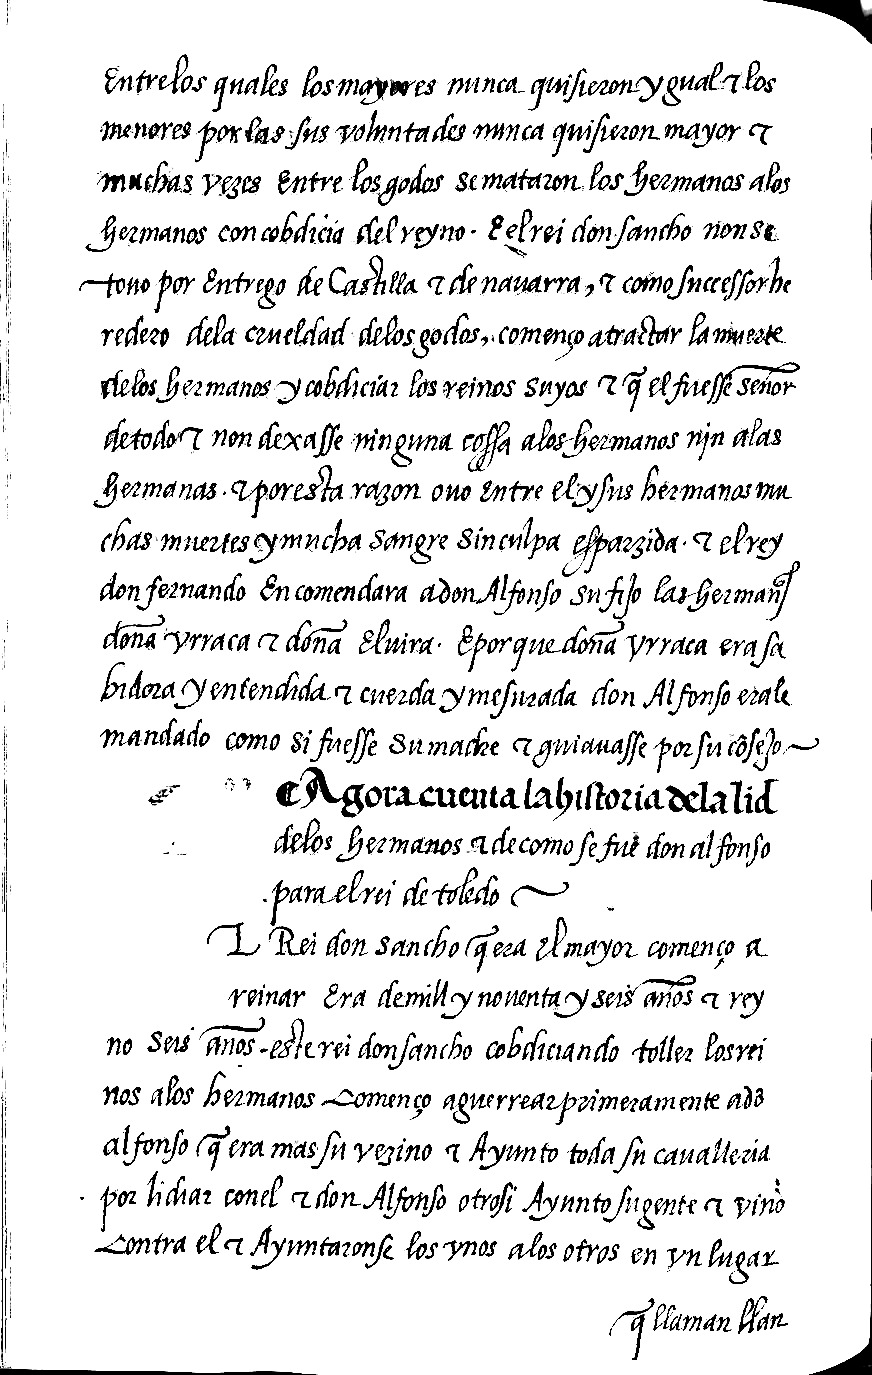 Entre los quales los mayores nunca quisieron ygual ⁊ los
menores por las sus voluntades nunca quisieron mayor ⁊
muchas vezes Entre los godos se mataron los hermanos alos
hermanos con cobdicia del reyno. E el rei don sancho non se
touo por Entrego de Castilla ⁊ de nauarra, ⁊ como successor he
redero dela crueldad delos godos, començo atractar la muerte
delos hermanos y cobdiciar los reinos suyos ⁊ q̃ el fuesse señor
de todo ⁊ non dexasse ninguna cossa alos hermanos nin alas
hermanas. ⁊ por esta razon ouo Entre el y sus hermanos mu
chas muertes y mucha sangre sin culpa esparzida. ⁊ el rey
don fernando Encomendara a don Alfonso su fijo las hermanas
doña Vrraca ⁊ doña Eluira. E por que doña Vrraca era sa
bidora y entendida ⁊ cuerda y mesurada don Alfonso erale
mandado como si fuesse su madre ⁊ guiauasse por su cõsejo
¶ Agora cuenta la historia dela lid
delos hermanos ⁊ de como se fue don alfonso
para el rei de toledo
L Rei don sancho q̃ era El mayor començo a
reinar Era de mill y nouenta y seis años ⁊ rey
no seis años. este rei don sancho cobdiciando toller los rei
nos alos hermanos Començo aguerrear primeramente a dõ
alfonso q̃ era mas su vezino ⁊ Ayunto toda su caualleria
por lidiar conel ⁊ don Alfonso otrosi Ayunto su gente ⁊ vino
Contra el ⁊ Ayuntaronse los vnos alos otros en vn lugar
q̃ llaman llan